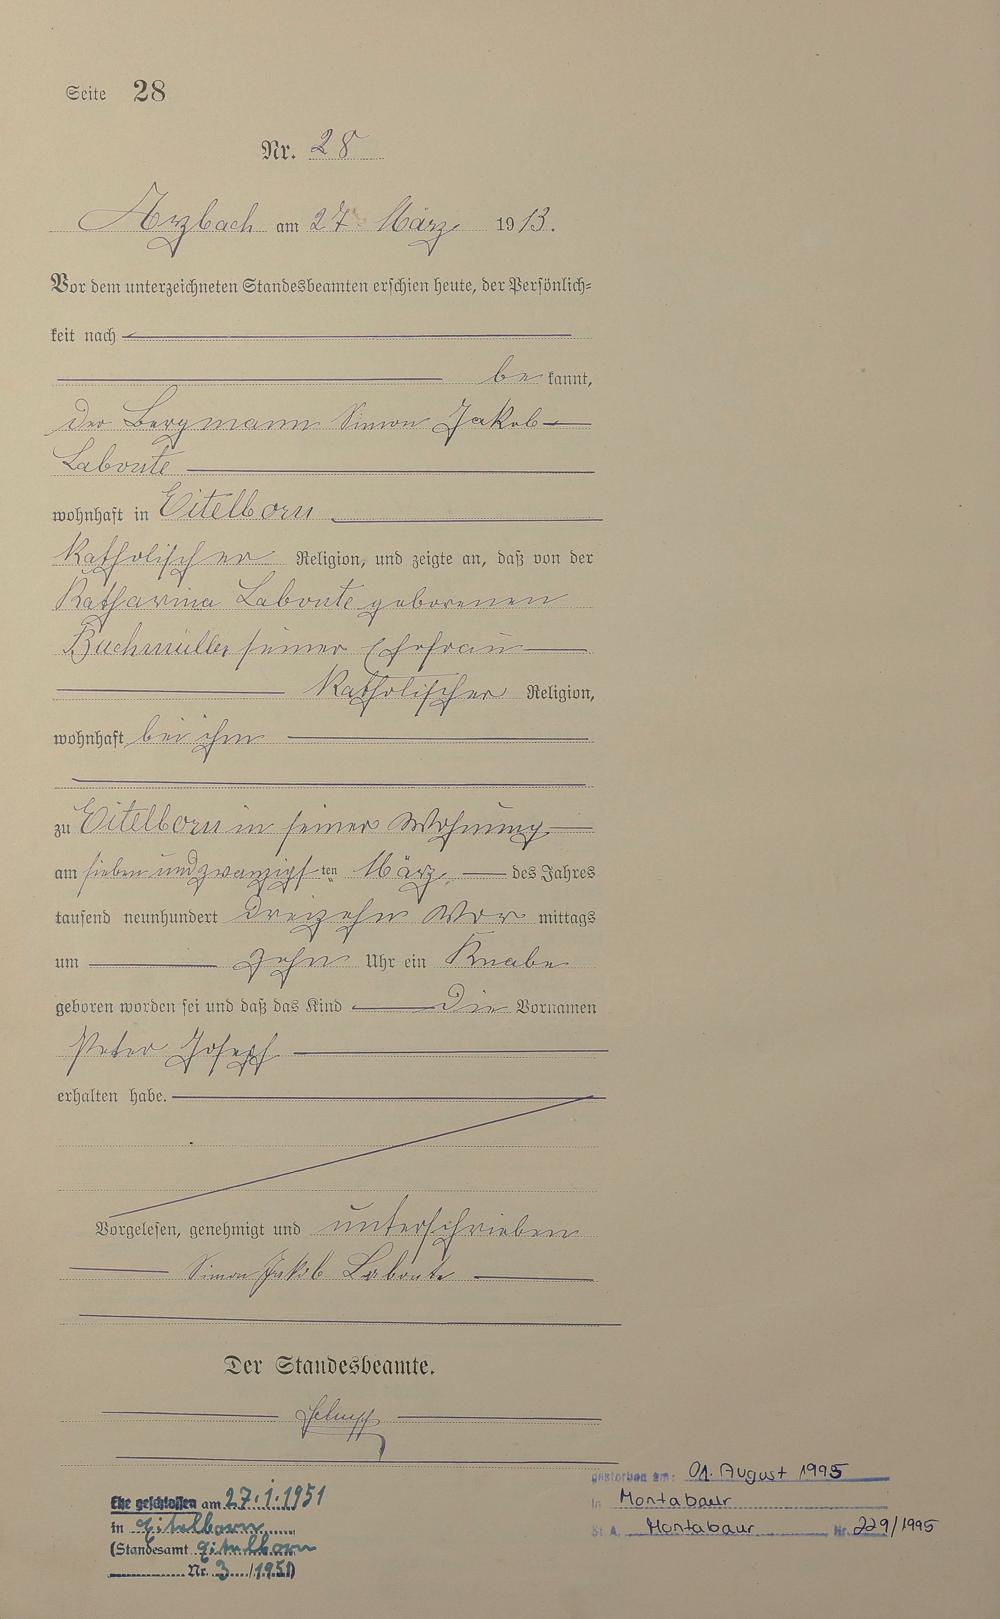 Seite 28
Nr. 28
Arzbach am 27. März 1913.
Vor dem unterzeichneten Standesbeamten erschien heute, der Persönlich-
keit nach
be kannt,
der Bergmann Simon Jakob
Labonte
wohnhaft in Eitelborn
katholischer Religion, und zeigte an, daß von der
Katharina Labonte geborenen
Buchmüller seiner Ehefrau
katholischer Religion,
wohnhaft bei ihm
zu Eitelborn in seiner Wohnung
am sieben und zwanzigsten März des Jahres
tausend neunhundert dreizehn Vor mittags
um zehn Uhr ein Knabe
geboren worden sei und daß das Kind die Vornamen
Peter Joseph
erhalten habe.
Vorgelesen, genehmigt und unterschrieben
Simon Jakob Labonte
Der Standesbeamte.
Ehe geschlossen am 27.1.1951
in Eitelborn
(Standesamt Eitelborn
Nr. 3 /1951)
gestorben am: 01. August 1995
in Montabaur
St. A. Montabaur Nr. 229/1995